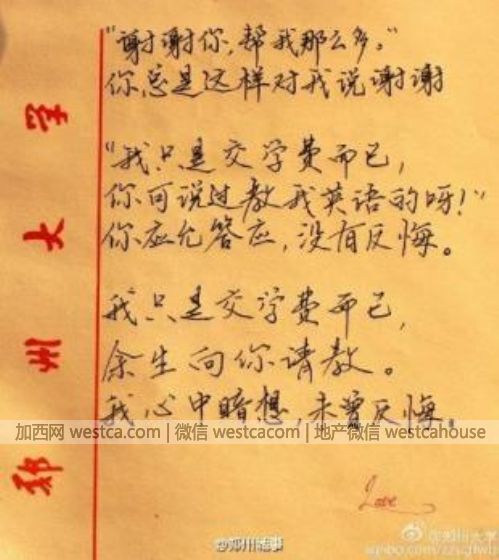 "谢谢你，帮我那么多。"
你总是这样对我说谢谢
"我只是交学费而已，
你可说过教我英语的呀！"
你应允答应，没有反悔。
我只是交学费而已，
余生向你请教。
我心中暗想，未曾反悔。
郑州大学
加西网 westca.com | 微信 westcacom | 地产微信 westcahouse
Love